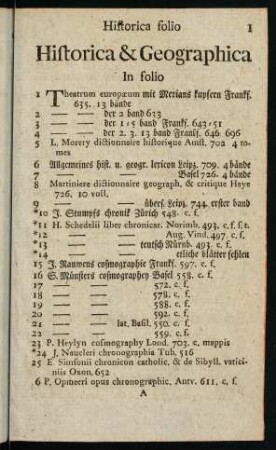 Historica folio 1
Historica & Geographica
In folio
1 Theatrum europæum mit Merians kupfern Frankf.
635. 13 bände
2 — — der 2 band 633
3 — — der 1-5 band Frankf. 643-51
4 — — der 2. 3. 13 band Frankf. 646 696
5 L. Morery dictionnaire historique Amst. 702 4 to-
mes
6 Allgemeines hist. u. geogr. lexicon Leipz. 709. 4 bände
7 — — Basel 726. 4 bände
8 Martiniere dictionnaire geograph. & critique Haye
726. 10 voll.
9 — — übers. Leipz. 744. erster band
*10 J. Stumpfs chronik Zürich 548. c. f.
*11 H. Schedelii liber chronicar. Norimb. 493. c. f. f. t.
*12 — — Aug. Vind. 497. c. f.
*13 — — teutsch Nürnb. 493. c. f.
*14 — — etliche blätter fehlen
15 J. Rauwens cosmographie Frankf. 597. c. f.
16 S. Münsters cosmographey Basel 558. c. f.
17 — — 572. c. f.
18 — — 578. c. f.
19 — — 588. c. f.
20 — — 592. c. f.
21 — — lat. Basil. 550. c. f.
22 — — 559. c. f.
23 P. Heylyn cosmography Lond. 703. c. mappis
*24 J. Naucleri chronographia Tub. 516
25 E Simsonii chronicon catholic. & de Sibyll. vatici-
niis Oxon. 652
6 P. Opmeeri opus chronographic. Antv. 611. c. f.
A